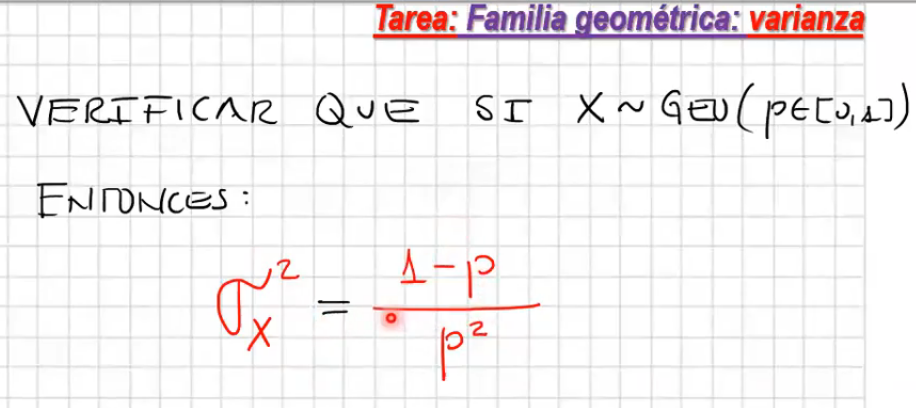 Tarea: Familia geométrica: varianza
VERIFICAR QUE SI X ~ GEO(p∈[0,1])
ENTONCES:
σ²_X = (1-p)/p²